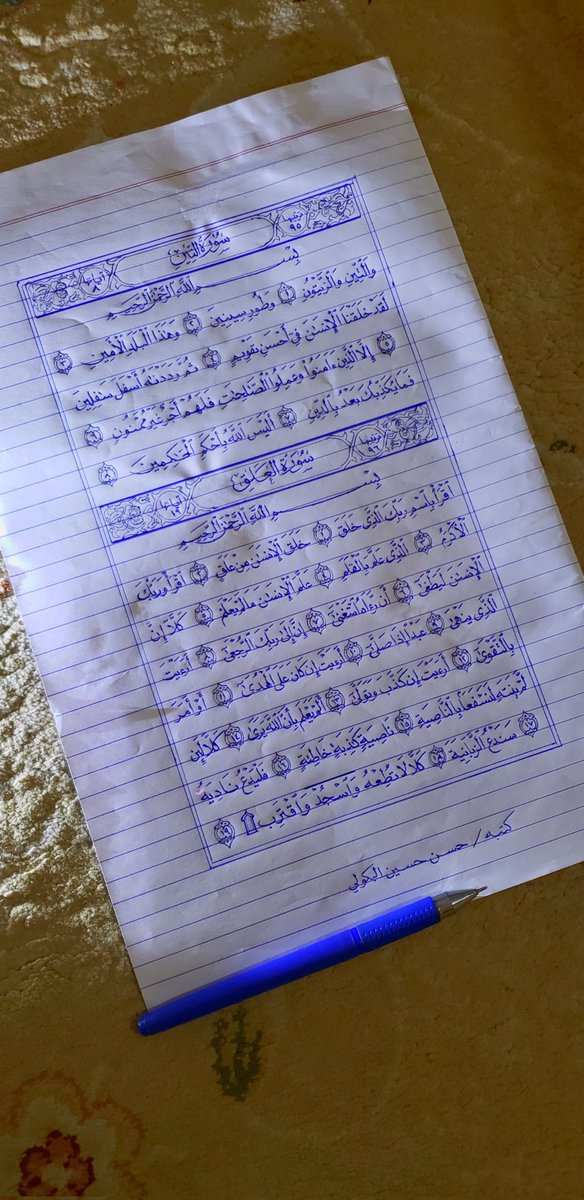 سُورَةُ التِّينِ
رتبتها ٩٥
آياتها ٨
بِسْمِ اللَّهِ الرَّحْمَٰنِ الرَّحِيمِ
وَالتِّينِ وَالزَّيْتُونِ ١ وَطُورِ سِينِينَ ٢ وَهَٰذَا الْبَلَدِ الْأَمِينِ ٣
لَقَدْ خَلَقْنَا الْإِنسَٰنَ فِي أَحْسَنِ تَقْوِيمٍ ٤ ثُمَّ رَدَدْنَٰهُ أَسْفَلَ سَٰفِلِينَ
٥ إِلَّا الَّذِينَ ءَامَنُوا وَعَمِلُوا الصَّٰلِحَٰتِ فَلَهُمْ أَجْرٌ غَيْرُ مَمْنُونٍ ٦
فَمَا يُكَذِّبُكَ بَعْدُ بِالدِّينِ ٧ أَلَيْسَ اللَّهُ بِأَحْكَمِ الْحَٰكِمِينَ ٨
سُورَةُ الْعَلَقِ
رتبتها ٩٦
آياتها ١٩
بِسْمِ اللَّهِ الرَّحْمَٰنِ الرَّحِيمِ
اقْرَأْ بِاسْمِ رَبِّكَ الَّذِي خَلَقَ ١ خَلَقَ الْإِنسَٰنَ مِنْ عَلَقٍ ٢ اقْرَأْ وَرَبُّكَ
الْأَكْرَمُ ٣ الَّذِي عَلَّمَ بِالْقَلَمِ ٤ عَلَّمَ الْإِنسَٰنَ مَا لَمْ يَعْلَمْ ٥ كَلَّا إِنَّ
الْإِنسَٰنَ لَيَطْغَىٰ ٦ أَن رَّءَاهُ اسْتَغْنَىٰ ٧ إِنَّ إِلَىٰ رَبِّكَ الرُّجْعَىٰ ٨ أَرَءَيْتَ
الَّذِي يَنْهَىٰ ٩ عَبْدًا إِذَا صَلَّىٰ ١٠ أَرَءَيْتَ إِن كَانَ عَلَى الْهُدَىٰ ١١ أَوْ أَمَرَ
بِالتَّقْوَىٰ ١٢ أَرَءَيْتَ إِن كَذَّبَ وَتَوَلَّىٰ ١٣ أَلَمْ يَعْلَم بِأَنَّ اللَّهَ يَرَىٰ ١٤ كَلَّا لَئِن
لَّمْ يَنتَهِ لَنَسْفَعًا بِالنَّاصِيَةِ ١٥ نَاصِيَةٍ كَٰذِبَةٍ خَاطِئَةٍ ١٦ فَلْيَدْعُ نَادِيَهُ
١٧ سَنَدْعُ الزَّبَانِيَةَ ١٨ كَلَّا لَا تُطِعْهُ وَاسْجُدْ وَاقْتَرِب ۩ ١٩
كتبه / حسن حسين البكولي